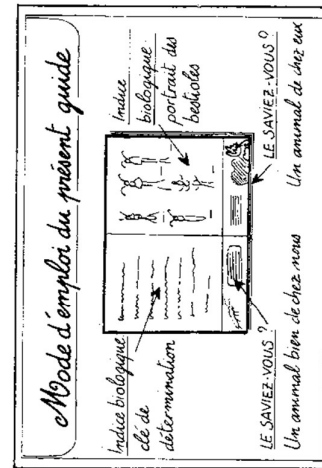 Mode d'emploi du présent guide
Indice biologique
clé de
détermination
Indice
biologique:
portrait des
bestioles
LE SAVIEZ-VOUS?
Un animal bien de chez nous
LE SAVIEZ-VOUS?
Un animal de chez eux